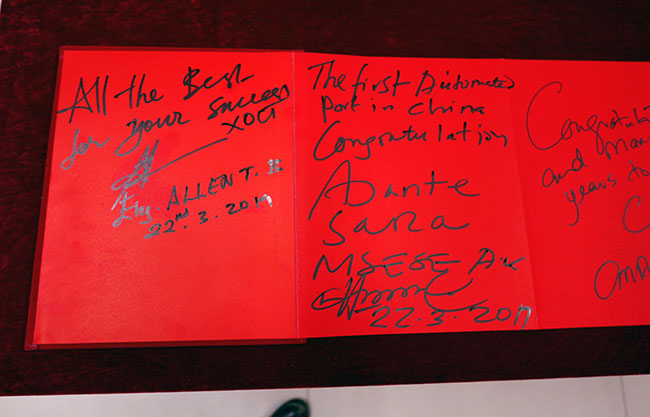 All the Best
for your success
XOCT
Eng. ALLEN T. B
22nd. 3. 2017
The first Automated
Port in China
Congratulation
Asante
Sana
MSESE
22.3.2017
Congratul
and man
years to
C